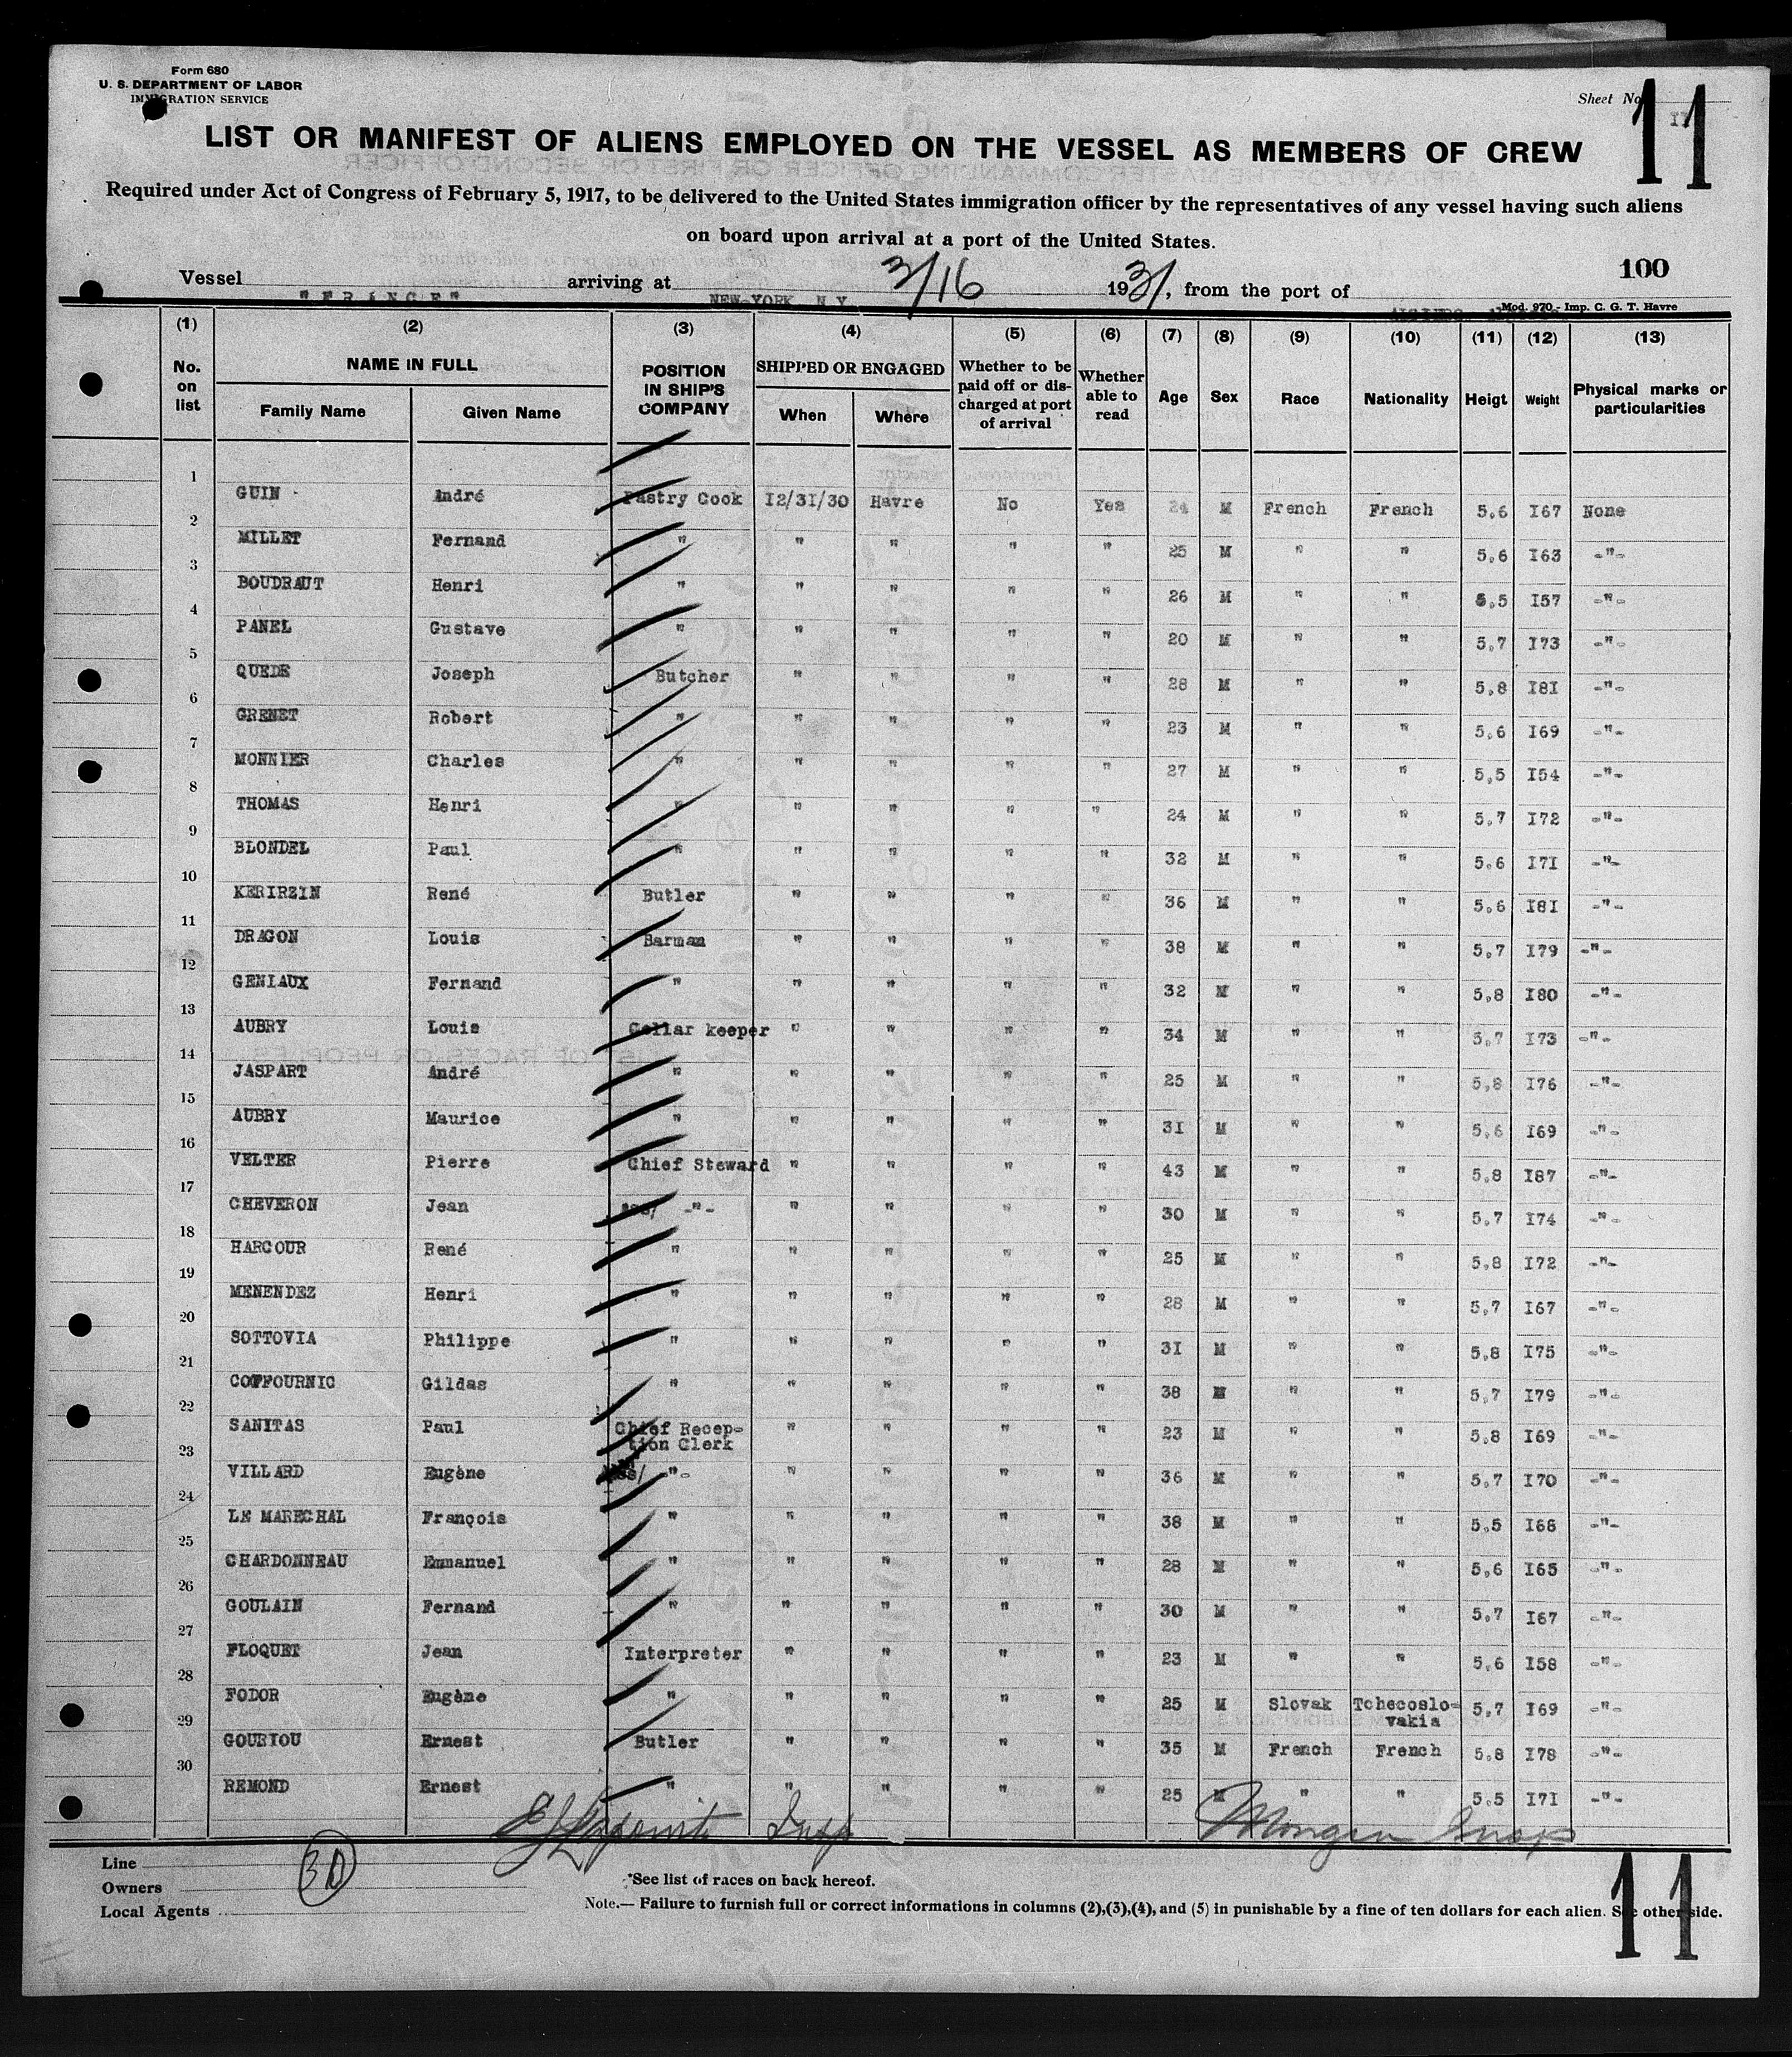 Form 680
U. S. DEPARTMENT OF LABOR
IMMIGRATION SERVICE
Sheet No. 11
11
LIST OR MANIFEST OF ALIENS EMPLOYED ON THE VESSEL AS MEMBERS OF CREW
Required under Act of Congress of February 5, 1917, to be delivered to the United States immigration officer by the representatives of any vessel having such aliens
on board upon arrival at a port of the United States.
100
Vessel "FRANCE" arriving at NEW-YORK N.Y. 3/16 1931, from the port of
Mod. 970 - Imp. C. G. T. Havre
(1) (2) (3) (4) (5) (6) (7) (8) (9) (10) (11) (12) (13)
No. on list NAME IN FULL Family Name Given Name POSITION IN SHIP'S COMPANY SHIPPED OR ENGAGED When Where Whether to be paid off or discharged at port of arrival Whether able to read Age Sex Race Nationality Heigt Weight Physical marks or particularities
1 GUIN André Pastry Cook 12/31/30 Havre No Yes 24 M French French 5.6 167 None
2 MILLET Fernand " " " " " 25 M " " 5,6 163 -"-
3 BOUDRAUT Henri " " " " " 26 M " " 5,5 157 -"-
4 PANEL Gustave " " " " " 20 M " " 5,7 173 -"-
5 QUEDE Joseph Butcher " " " " 28 M " " 5,8 181 -"-
6 GRENET Robert " " " " " 23 M " " 5,6 169 -"-
7 MONNIER Charles " " " " " 27 M " " 5,5 154 -"-
8 THOMAS Henri " " " " " 24 M " " 5,7 172 -"-
9 BLONDEL Paul " " " " " 32 M " " 5,6 171 -"-
10 KERIRZIN René Butler " " " " 36 M " " 5,6 181 -"-
11 DRAGON Louis Barman " " " " 38 M " " 5,7 179 -"-
12 GENIAUX Fernand " " " " " 32 M " " 5,8 180 -"-
13 AUBRY Louis Cellar keeper " " " " 34 M " " 5,7 173 -"-
14 JASPART André " " " " " 25 M " " 5,8 176 -"-
15 AUBRY Maurice " " " " " 31 M " " 5,6 169 -"-
16 VELTER Pierre Chief Steward " " " " 43 M " " 5,8 187 -"-
17 CHEVERON Jean ass/ -"- " " " " 30 M " " 5,7 174 -"-
18 HARCOUR René " " " " " 25 M " " 5,8 172 -"-
19 MENENDEZ Henri " " " " " 28 M " " 5,7 167 -"-
20 SOTTOVIA Philippe " " " " " 31 M " " 5,8 175 -"-
21 COFFOURNIC Gildas " " " " " 38 M " " 5,7 179 -"-
22 SANITAS Paul Chief Reception Clerk " " " " 23 M " " 5,8 169 -"-
23 VILLARD Eugène Ass/ -"- " " " " 36 M " " 5,7 170 -"-
24 LE MARECHAL François " " " " " 38 M " " 5,5 166 -"-
25 CHARDONNEAU Emmanuel " " " " " 28 M " " 5,6 165 -"-
26 GOULAIN Fernand " " " " " 30 M " " 5,7 167 -"-
27 FLOQUET Jean Interpreter " " " " 23 M " " 5,6 158 -"-
28 FODOR Eugène " " " " " 25 M Slovak Tchecoslovakia 5,7 169 -"-
29 GOURIOU Ernest Butler " " " " 35 M French French 5.8 178 -"-
30 REMOND Ernest " " " " " 25 M " " 5.5 171 -"-
Line
Owners
Local Agents
*See list of races on back hereof.
Note.— Failure to furnish full or correct informations in columns (2),(3),(4), and (5) in punishable by a fine of ten dollars for each alien. See other side.
11